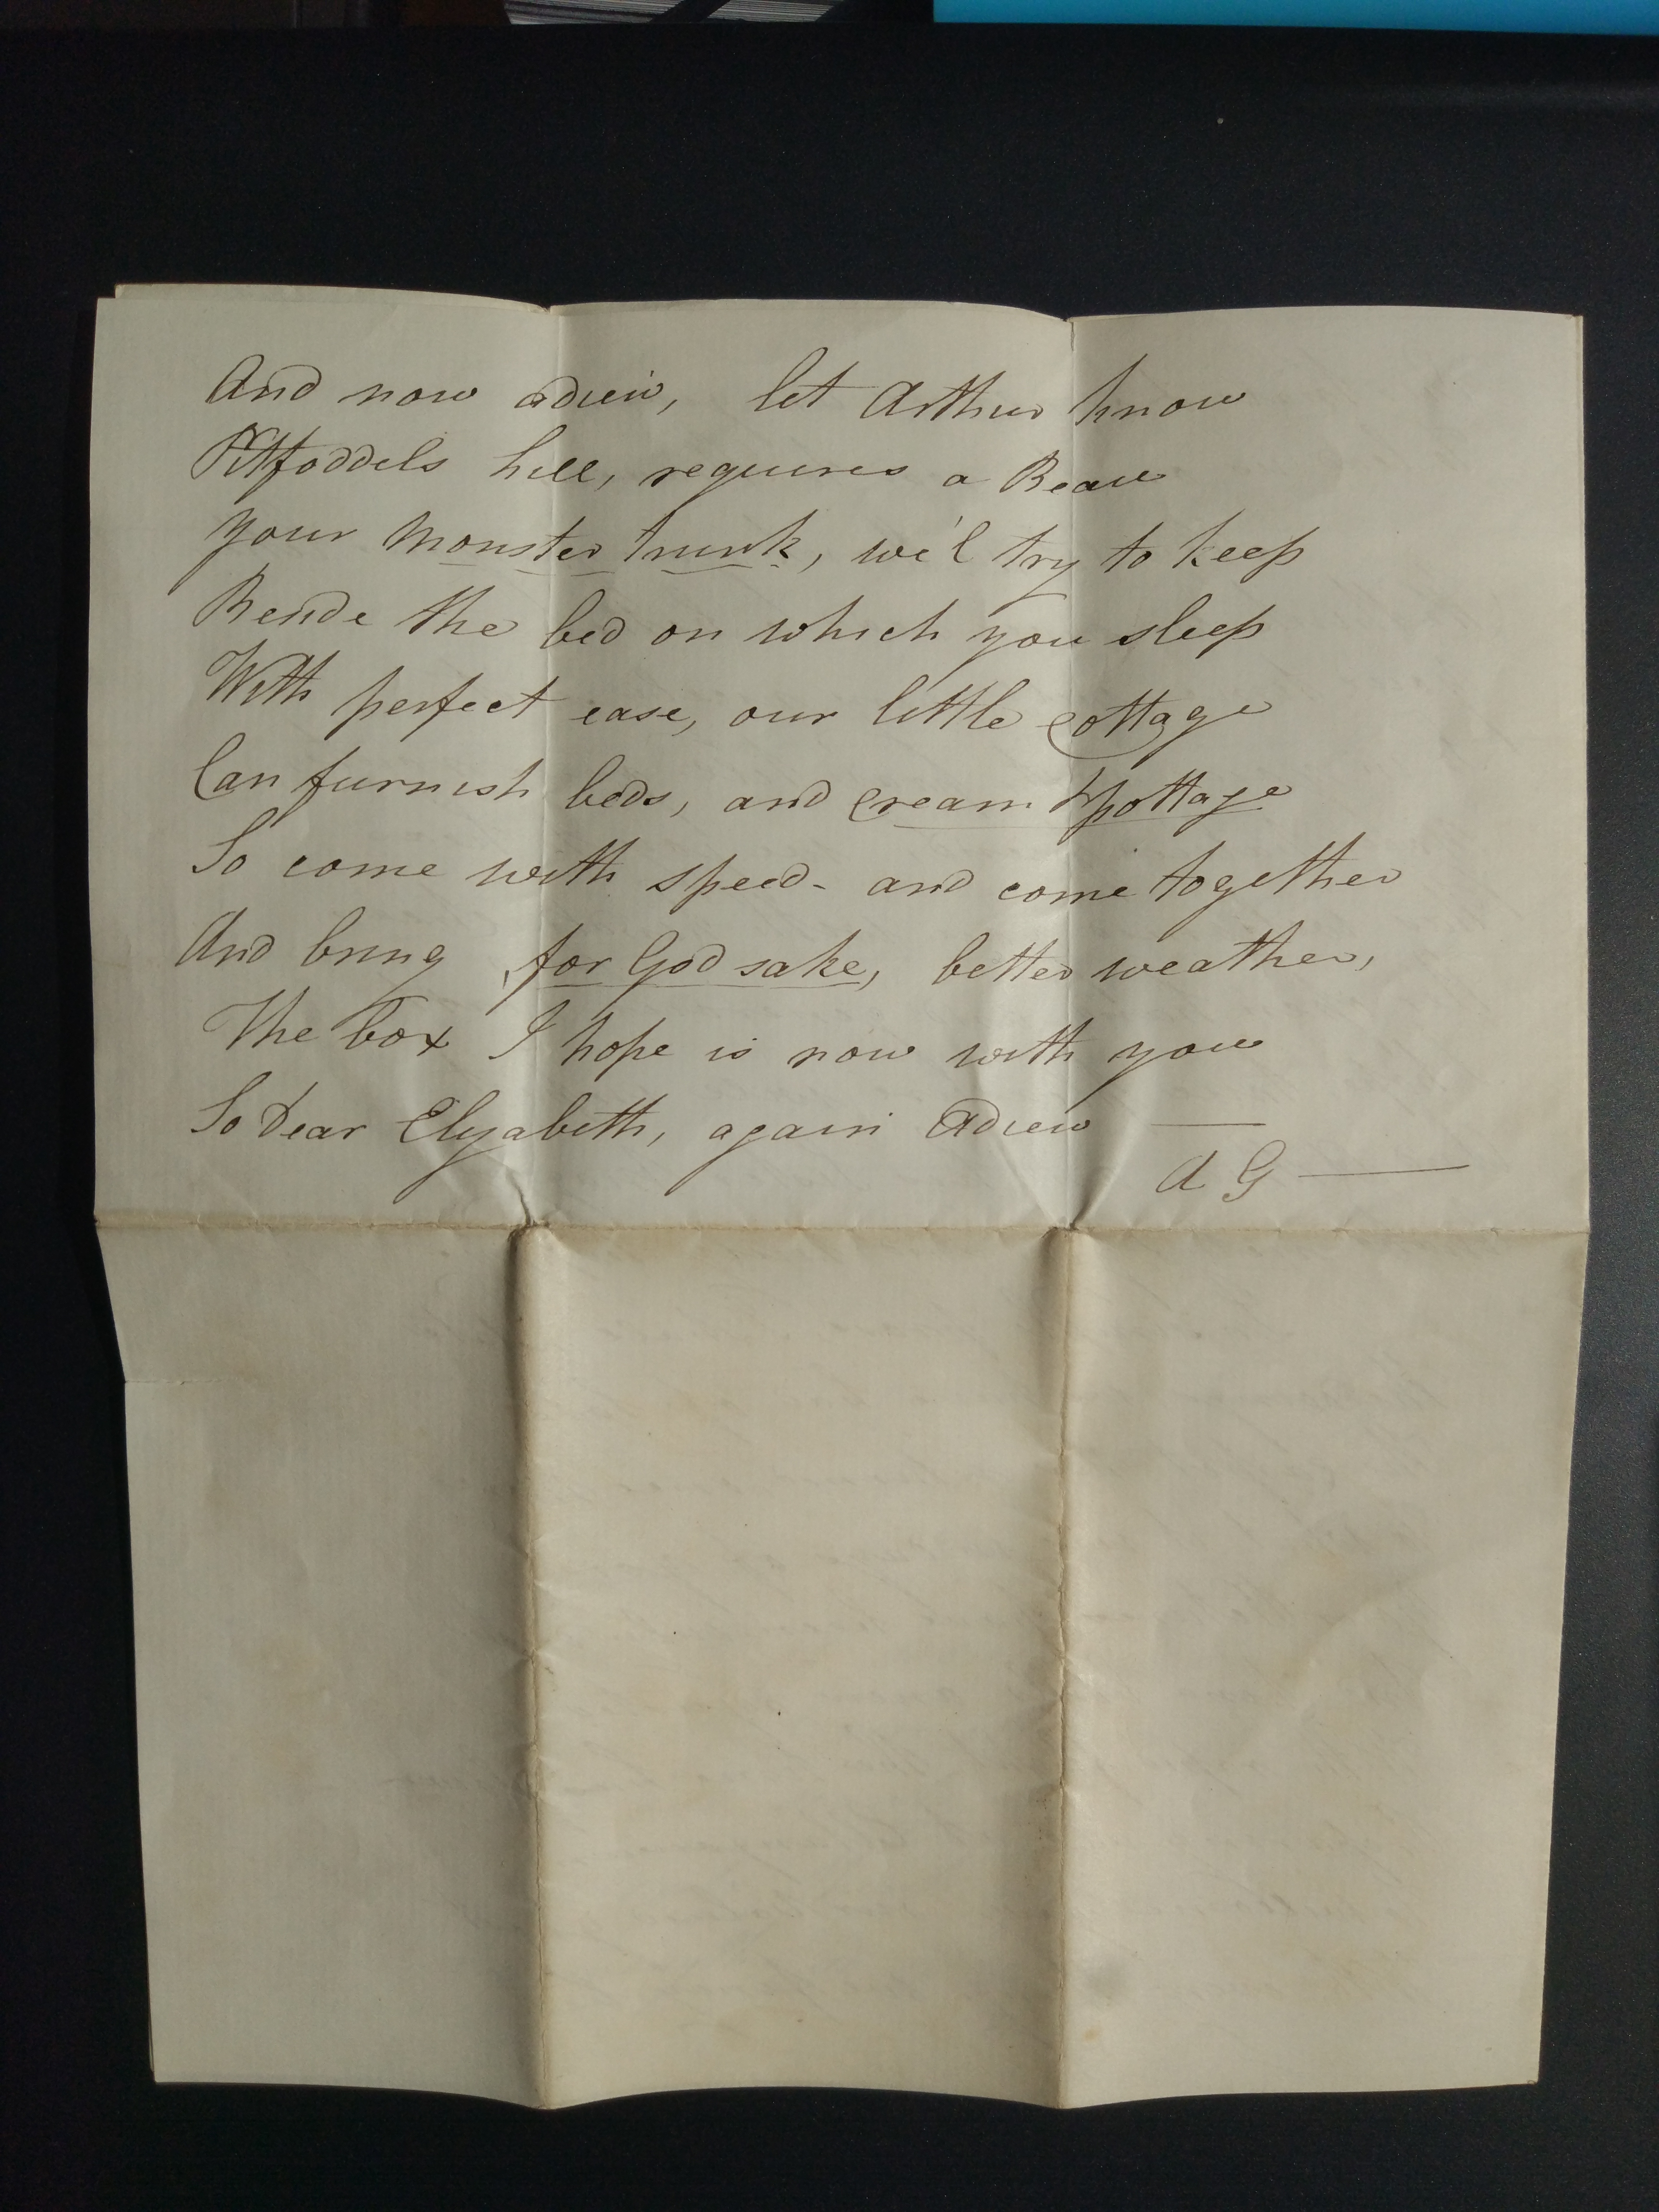 And now adieu, let Arthur know
Pitfoddels hill, requires a Beau
Your Monster trunk, we'l try to keep
Beside the bed on which you sleep
With perfect ease, our little cottage
Can furnish beds, and cream & pottage
So come with speed - and come together
And bring for God sake, better weather,
The box I hope is now with you
So dear Elizabeth, again Adieu —
A G —